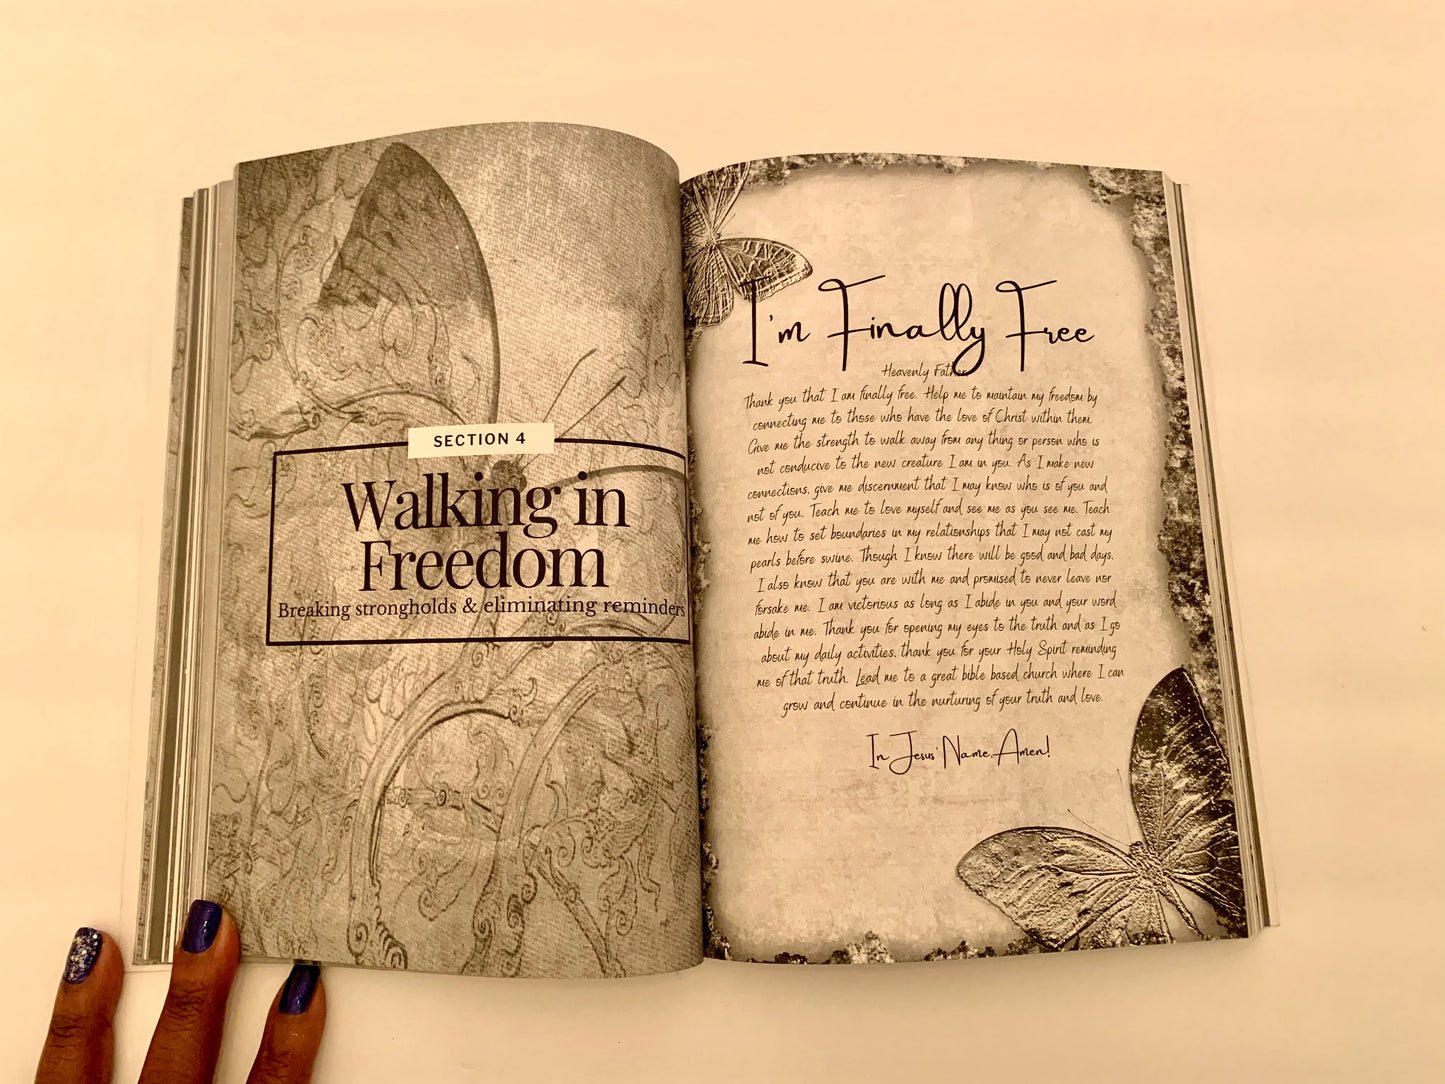 SECTION 4
Walking in
Freedom
Breaking strongholds & eliminating reminders
I'm Finally Free
Heavenly Father,
Thank you that I am finally free. Help me to maintain my freedom by
connecting me to those who have the love of Christ within them.
Give me the strength to walk away from any thing or person who is
not conducive to the new creature I am in you. As I make new
connections, give me discernment that I may know who is of you and
not of you. Teach me to love myself and see me as you see me. Teach
me how to set boundaries in my relationships that I may not cast my
pearls before swine. Though I know there will be good and bad days,
I also know that you are with me and promised to never leave nor
forsake me. I am victorious as long as I abide in you and your word
abide in me. Thank you for opening my eyes to the truth and as I go
about my daily activities, thank you for your Holy Spirit reminding
me of that truth. Lead me to a great bible based church where I can
grow and continue in the nurturing of your truth and love.
In Jesus' Name, Amen!